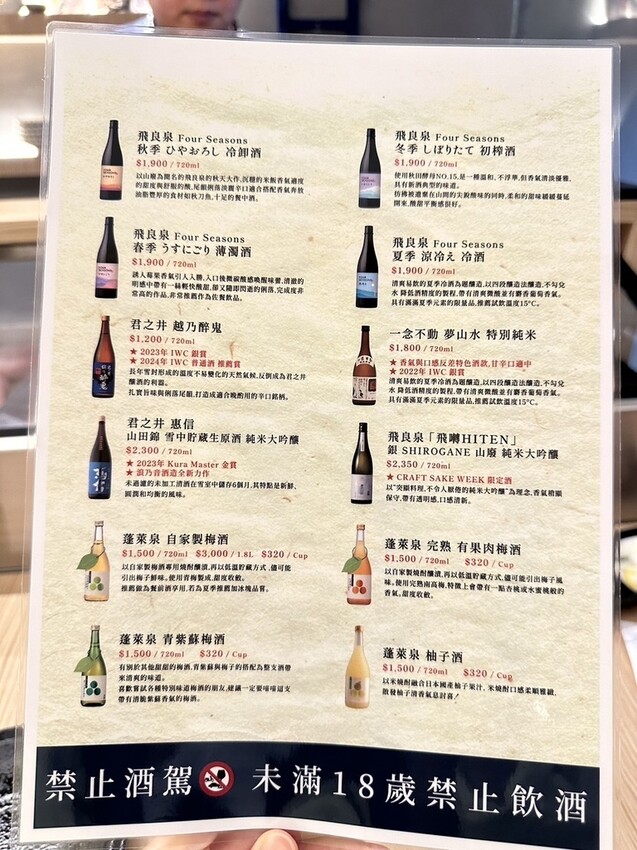 飛良泉 Four Seasons
秋季 ひやおろし 冷卸酒
$1,900 / 720ml
以山廢為聞名的飛良泉的秋天大作,沉穩的米飯香氣適度
的甜度與舒服的酸,尾韻俐落淡麗辛口適合搭配香氣奔放
油脂豐厚的食材如秋刀魚,十足的餐中酒。
飛良泉 Four Seasons
冬季 しぼりたて 初榨酒
$1,900 / 720ml
使用秋田酵母NO.15,是一種溫和、不浮華,但香氣清淡優雅、
具有新酒典型的味道。
彷彿被遺棄在山間的尖銳酸味的同時,柔和的甜味緩緩蔓延
開來,酸甜平衡感很好。
飛良泉 Four Seasons
春季 うすにごり 薄濁酒
$1,900 / 720ml
誘人莓果香氣引人入勝,入口後微碳酸感喚醒味蕾,清澈的
明感中帶有一絲輕快酸甜,卻又隨即閃逝的俐落,完成度非
常高的作品,非常推薦作為佐餐飲品。
飛良泉 Four Seasons
夏季 涼冷え 冷酒
$1,900 / 720ml
清爽易飲的夏季冷酒為題釀造,以四段釀造法釀造,不勾兌
水 降低酒精度的製程,帶有清爽微酸並有麝香葡萄香氣。
具有滿滿夏季元素的限量品,推薦試飲溫度15°C。
君之井 越乃醉鬼
$1,200 / 720ml
★ 2023年 IWC 銀賞
★ 2024年 IWC 普通酒 推薦賞
長年雪封形成的溫度不易變化的天然氣候,反倒成為君之井
釀酒的利器。
扎實旨味與俐落尾韻,打造成適合晚酌用的辛口銘柄。
一念不動 夢山水 特別純米
$1,800 / 720ml
★ 香氣與口感反差特色酒款,甘辛口適中
★ 2022年 IWC 銀賞
清爽易飲的夏季冷酒為題釀造,以四段釀造法釀造,不勾兌
水 降低酒精度的製程,帶有清爽微酸並有麝香葡萄香氣。
具有滿滿夏季元素的限量品,推薦試飲溫度15°C。
君之井 惠信
山田錦 雪中貯藏生原酒 純米大吟釀
$2,300 / 720ml
★ 2023年 Kura Master 金賞
★ 浪乃音酒造全新力作
未過濾的未加工清酒在雪室中儲存6個月,其特點是新鮮、
圓潤和均衡的風味。
飛良泉「飛囀HITEN」
銀 SHIROGANE 山廢 純米大吟釀
$2,350 / 720ml
★ CRAFT SAKE WEEK 限定酒
以"突顯料理,不令人厭倦的純米大吟釀"為理念,香氣稍顯
保守,帶有透明感,口感清新。
蓬萊泉 自家製梅酒
$1,500 / 720ml $3,000 / 1.8L $320 / Cup
以自家製梅酒專用燒酎釀漬,再以低溫貯藏方式,儘可能
引出梅子鮮味。使用青梅製成,甜度收斂。
推薦飲為餐前酒享用,若為夏季推薦加冰塊品嘗。
蓬萊泉 完熟 有果肉梅酒
$1,500 / 720ml $320 / Cup
以自家製燒酎釀漬,再以低溫貯藏方式,儘可能引出梅子風
味。使用完熟南高梅,特徵上會帶有一點杏桃或水蜜桃般的
香氣,甜度收斂。
蓬萊泉 青紫蘇梅酒
$1,500 / 720ml $320 / Cup
有別於其他甜甜的梅酒,青紫蘇與梅子的搭配為整支酒帶
來清爽的味道。
喜歡嘗試各種特別味道梅酒的朋友,建議一定要喝喝這支
帶有清脆紫蘇香氣的梅酒。
蓬萊泉 柚子酒
$1,500 / 720ml $320 / Cup
以米燒酎融合日本國產柚子果汁、米燒酎口感柔順雅緻,
散發柚子清香氣息討喜！
禁止酒駕 未滿18歲禁止飲酒